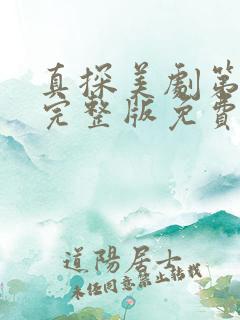 真探美劇第
完整版免費
道陽居士
未经同意禁止转载